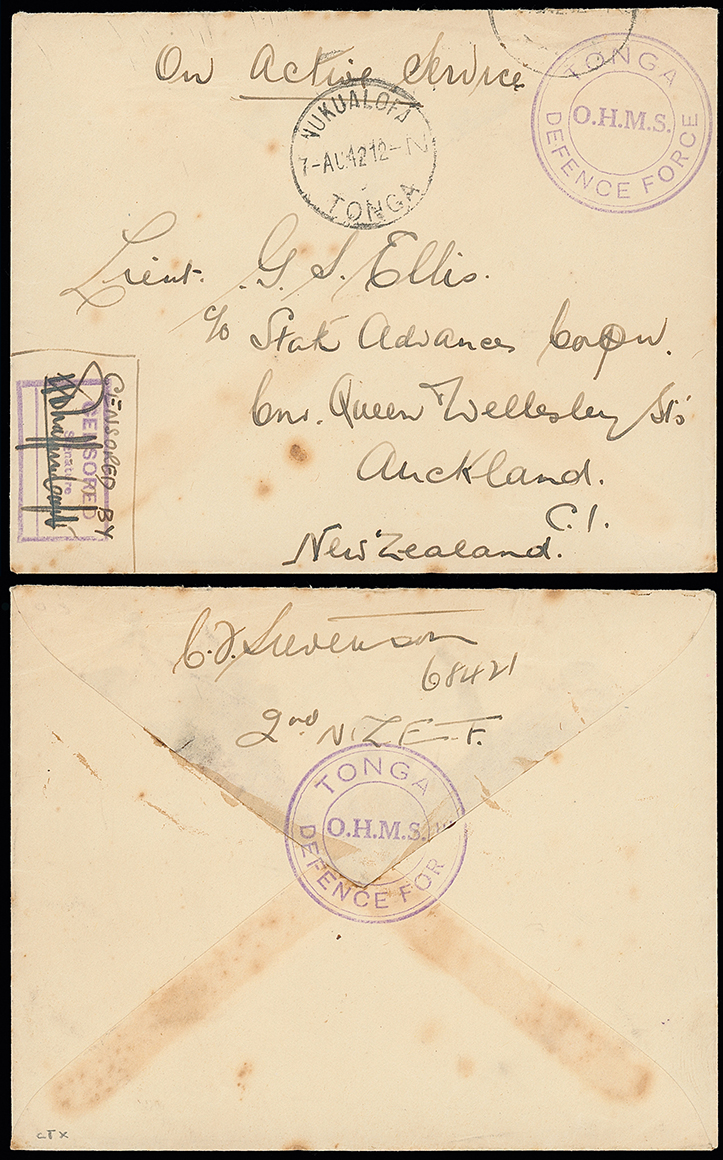 On Active Service
NUKUALOFA
7-AU4212-N
TONGA
TONGA
O.H.M.S.
DEFENCE FORCE
Lieut. G. S. Ellis.
c/o State Advances Corpn.
Cnr. Queen Wellesley Sts
Auckland.
C.1.
New Zealand.
CENSORED BY
CENSORED
Signature
C. J. Stevenson
68421
2nd N.Z.E.F.
TONGA
O.H.M.S.
DEFENCE FOR
CTX